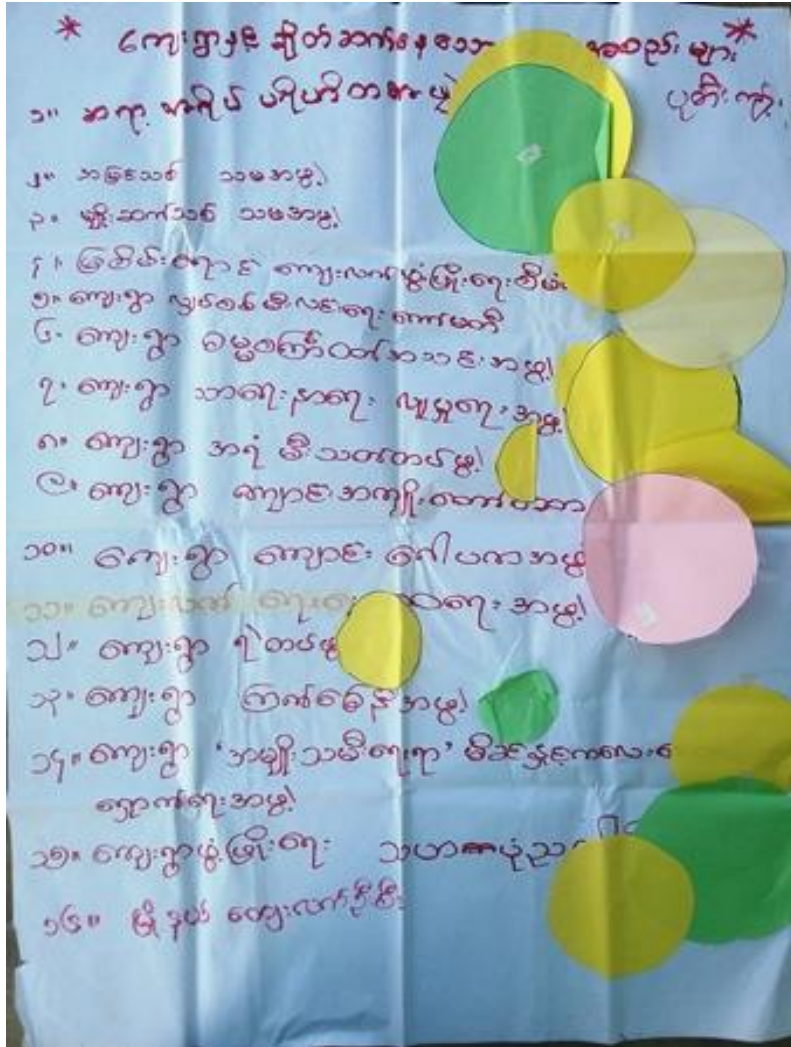 * ကျေးရွာနှင့် ချိတ်ဆက်နေသော အစည်းများ *
၁။ ဆရာ့ အရိပ် ပရိဟိတ
၂။ အမြင်သစ် သမအဖွဲ့
၃။ မျိုးဆက်သစ် သမအဖွဲ့
၄။ မြစိမ်းရောင် ကျေးလက်ဖွံ့ဖြိုးရေးစီမံ
၅။ ကျေးရွာ လျှပ်စစ်မီးလင်းရေး ကော်မတီ
၆။ ကျေးရွာ ဓမ္မစကြာဝတ်အသင်းအဖွဲ့
၇။ ကျေးရွာ သာရေးနာရေး လူမှုရေးအဖွဲ့
၈။ ကျေးရွာ အရံ မီးသတ်တပ်ဖွဲ့
၉။ ကျေးရွာ ကျောင်းအကျိုးတော်
၁၀။ ကျေးရွာ ကျောင်း ဂေါပကအဖွဲ့
၁၁။ ကျေးလက် အဖွဲ့
၁၂။ ကျေးရွာ ရဲတပ်ဖွဲ့
၁၃။ ကျေးရွာ ကြက်ခြေနီအဖွဲ့
၁၄။ ကျေးရွာ 'အမျိုးသမီးရေးရာ' မိခင်နှင့်ကလေး
ရှောက်ရေးအဖွဲ့
၁၅။ ကျေးရွာဖွံ့ဖြိုးရေး
၁၆။ မြို့နယ် ကျေးလက်ဦးစီး